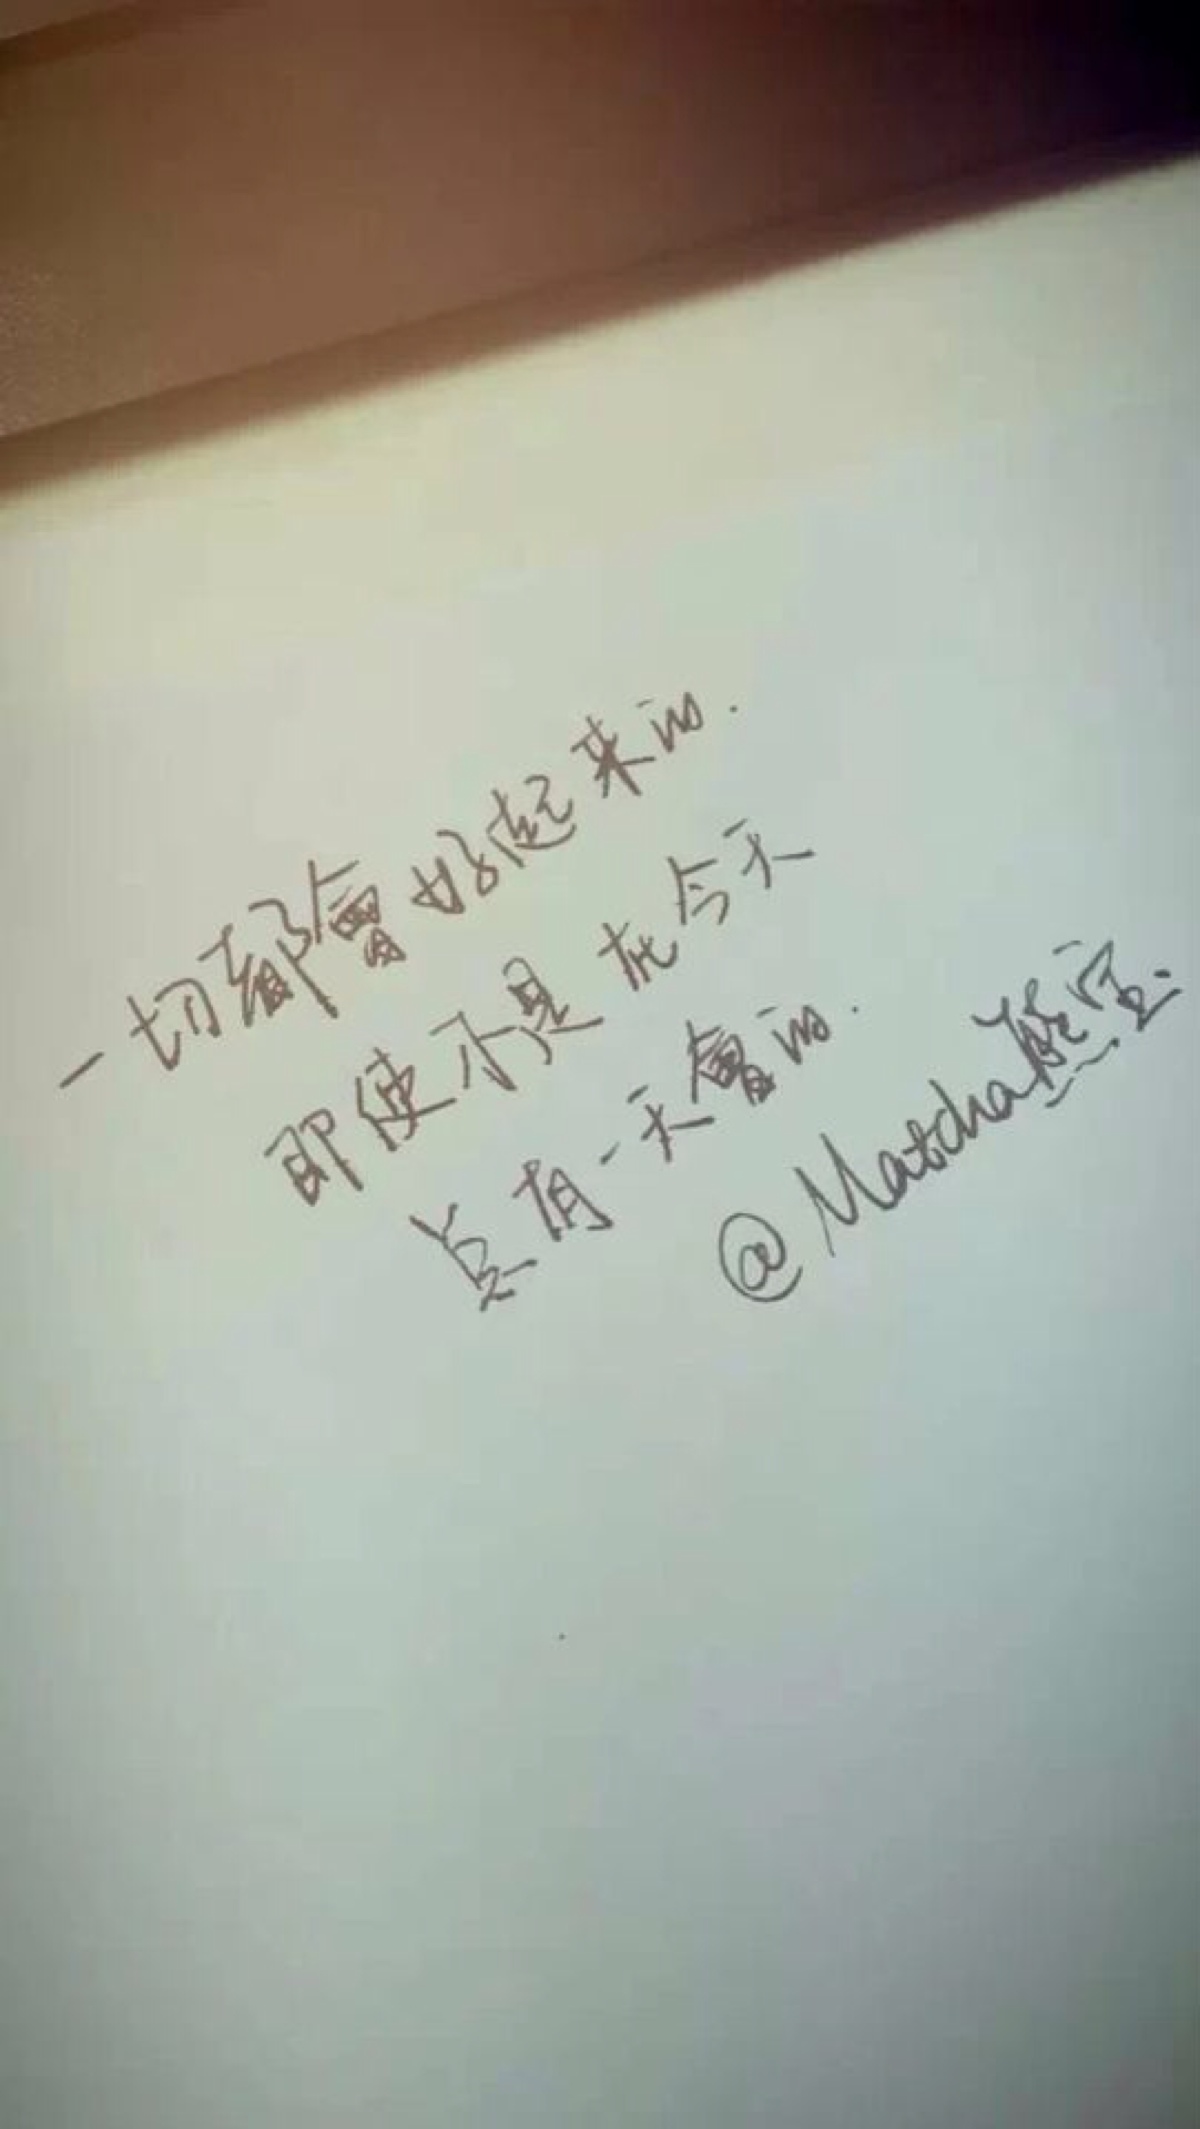 一切都會好起来的.
即使不是在今天
总有一天會的.
@Matcha